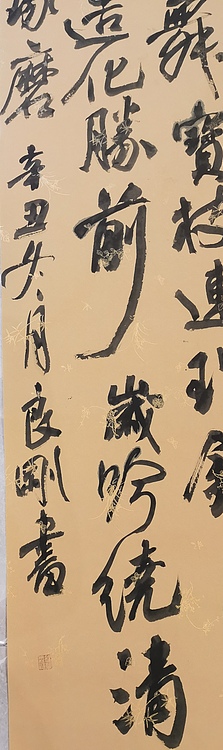 舞寶枝連理
造化勝前歲吟繞清
琢磨 辛丑冬月良剛書